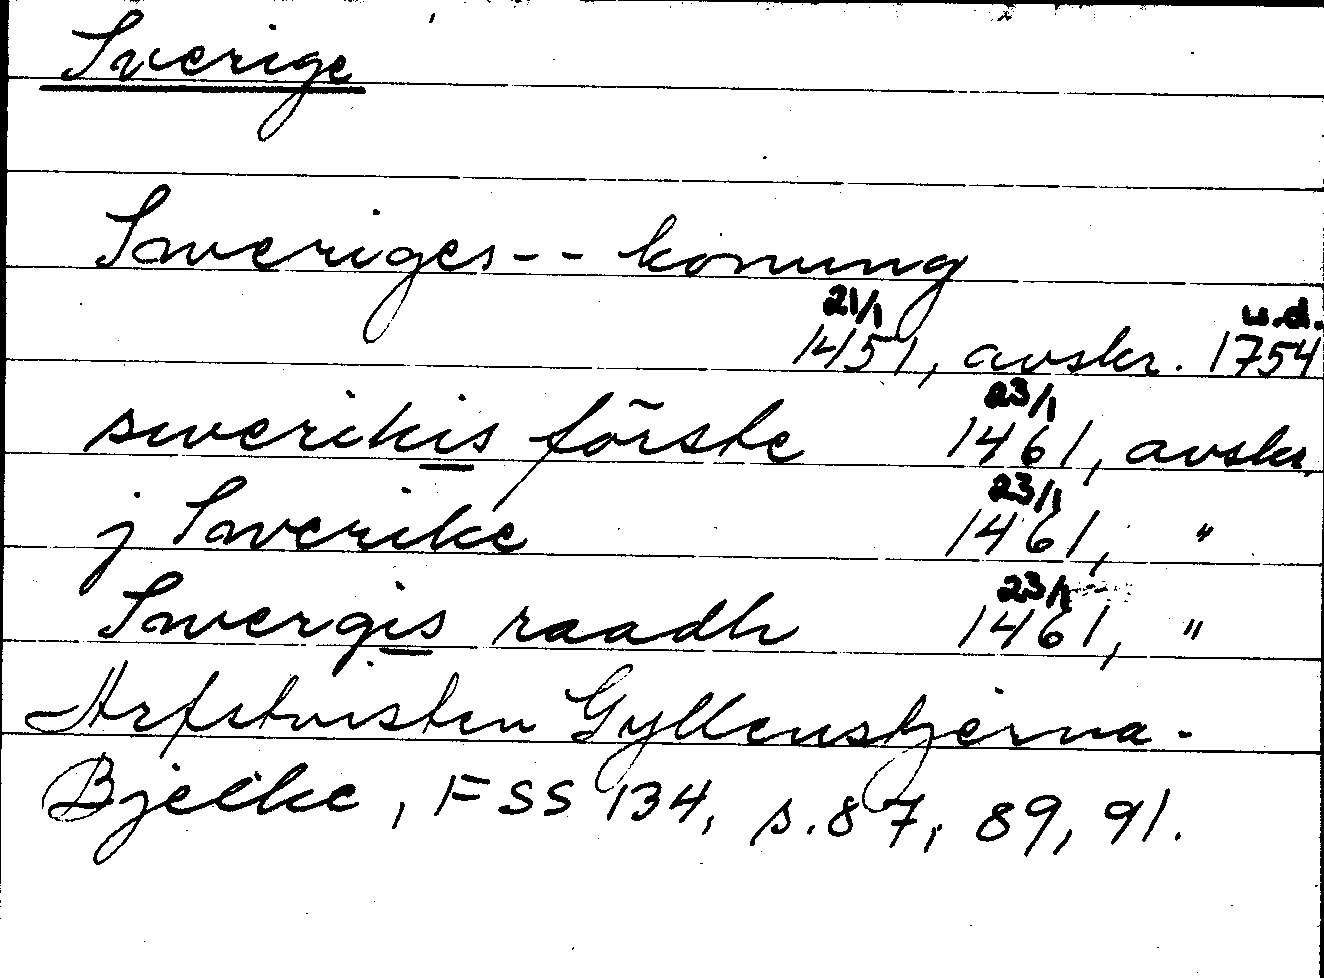 Sverige
Sweriges -- konung
21/1 u.d.
1451, avskr. 1754
swerikis förste 23/1 1461, avskr.
j Swerike 23/1 1461, "
Swergis raadh 23/1 1461, "
Arfstvisten Gyllenstjerna-
Bjelke, FSS 134, s. 87, 89, 91.